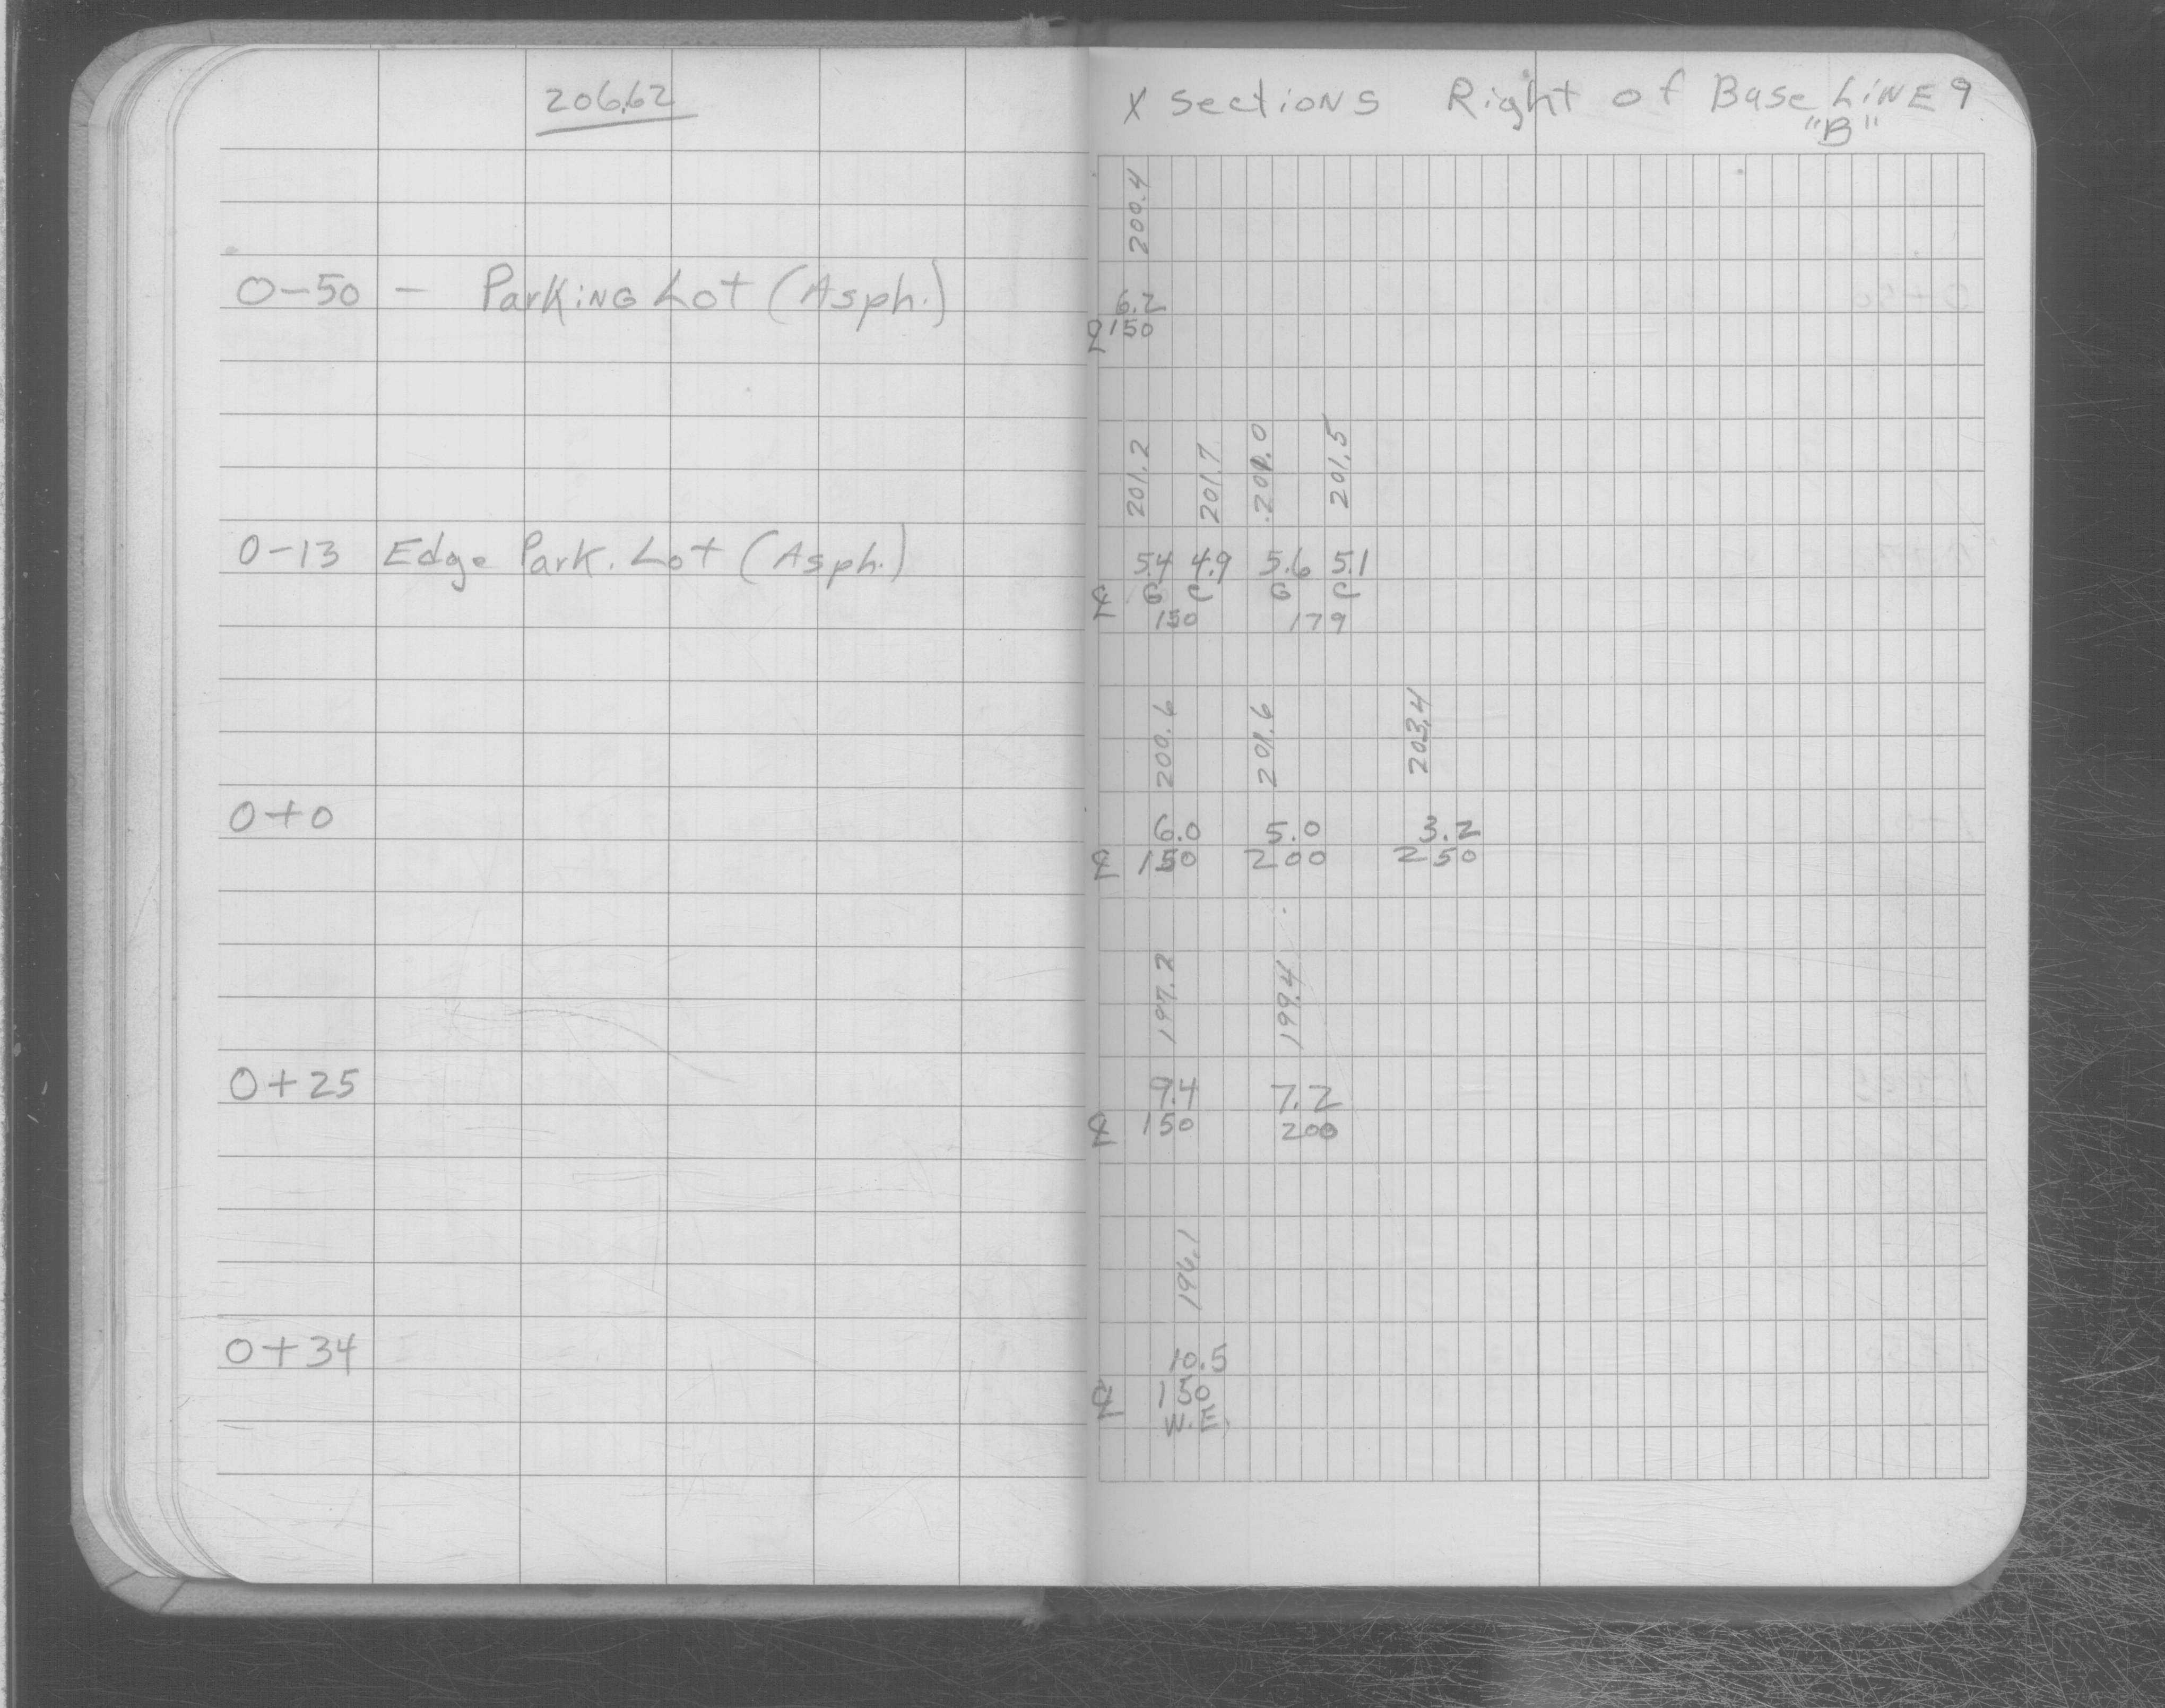 206.62
X Sections Right of Base LiNE 9
"B"
200.4
0-50 - Parking Lot (Asph.)
6.2
℄ 150
201.2 201.7 201.0 201.5
0-13 Edge Park. Lot (Asph.)
5.4 4.9 5.6 5.1
℄ G C G C
150 179
200.6 201.6 203.4
0+0
6.0 5.0 3.2
℄ 150 200 250
197.2 199.4
0+25
9.4 7.2
℄ 150 200
196.1
0+34
10.5
℄ 150
W.E.